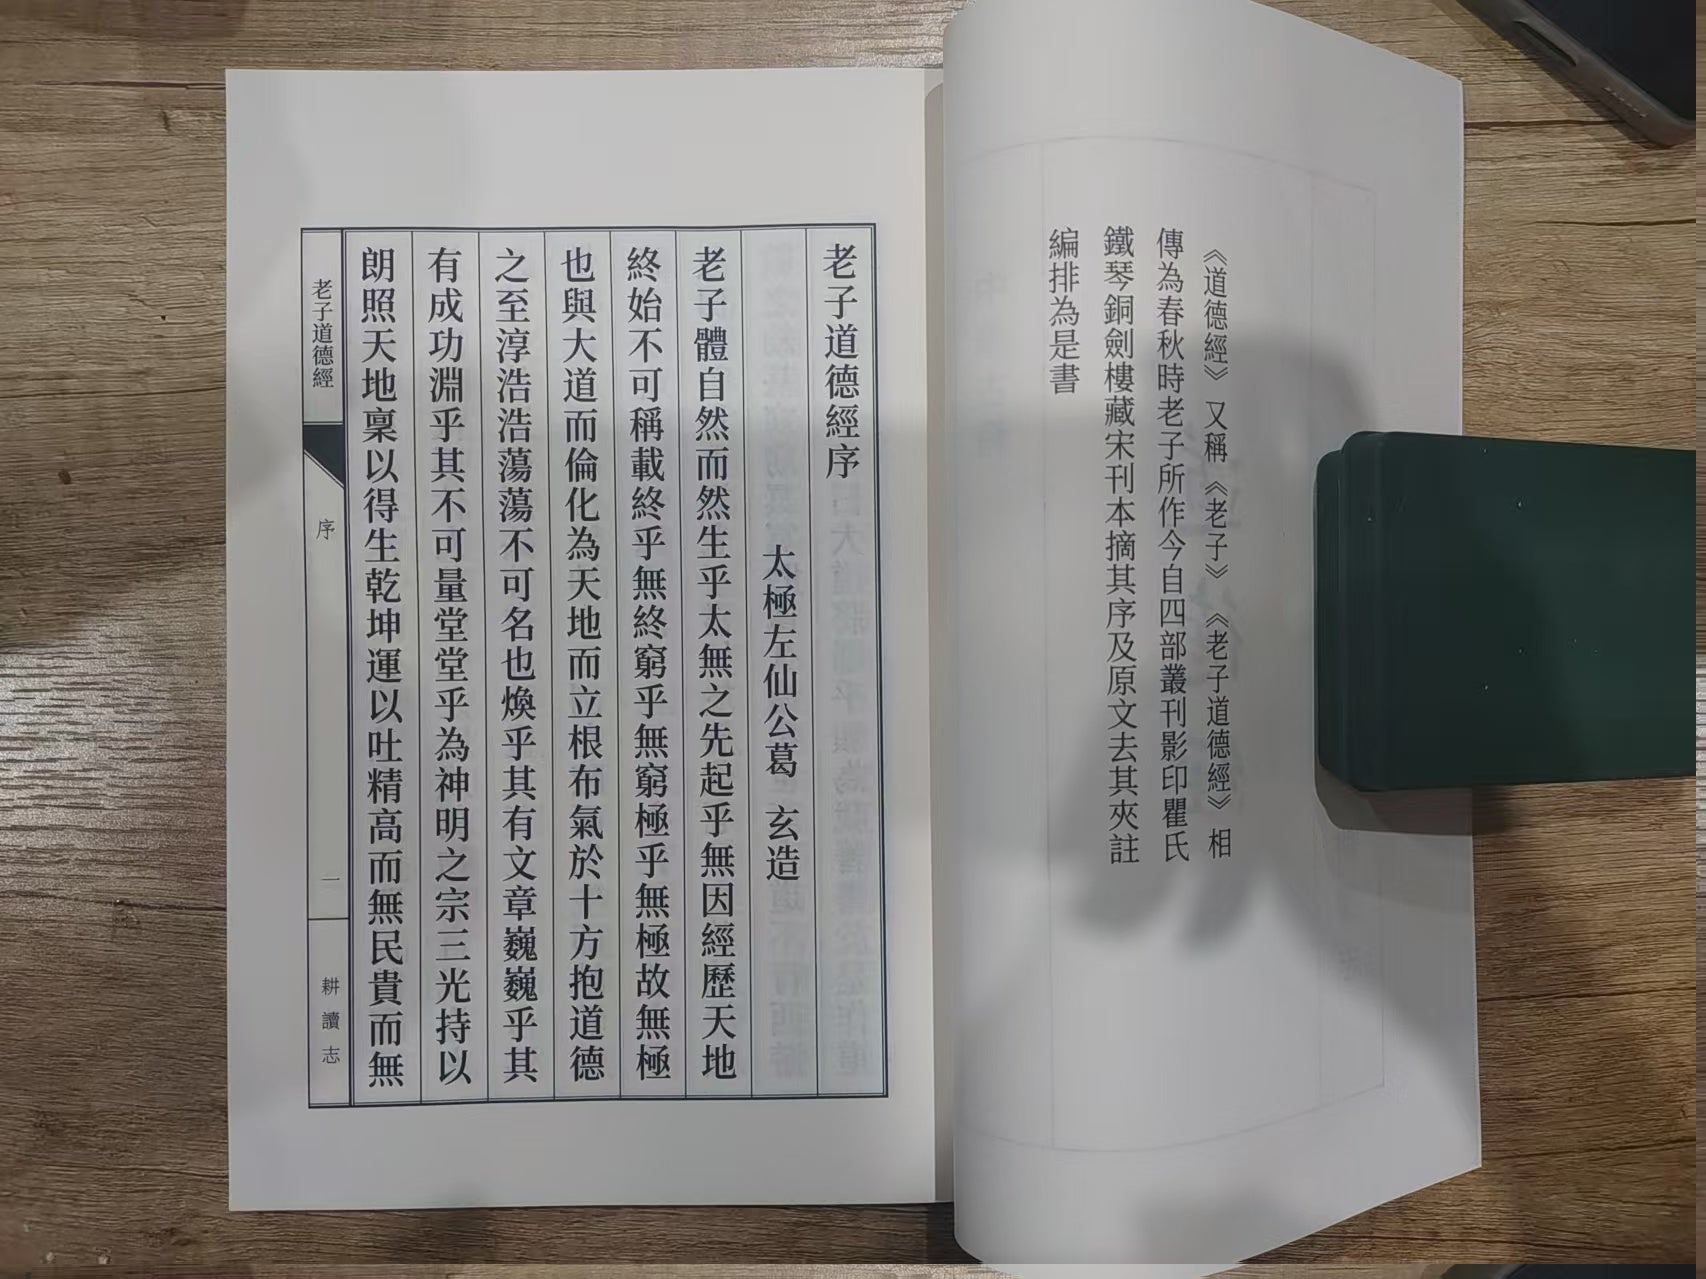 《道德經》又稱《老子》《老子道德經》相
傳為春秋時老子所作今自四部叢刊影印瞿氏
鐵琴銅劍樓藏宋刊本摘其序及原文去其夾註
編排為是書
老子道德經序
太極左仙公葛 玄造
老子體自然而然生乎太無之先起乎無因經歷天地
終始不可稱載終乎無終窮乎無窮極乎無極故無極
也與大道而倫化為天地而立根布氣於十方抱道德
之至淳浩浩蕩蕩不可名也煥乎其有文章巍巍乎其
有成功淵乎其不可量堂堂乎為神明之宗三光持以
朗照天地稟以得生乾坤運以吐精高而無民貴而無
老子道德經
序
一
耕讀志